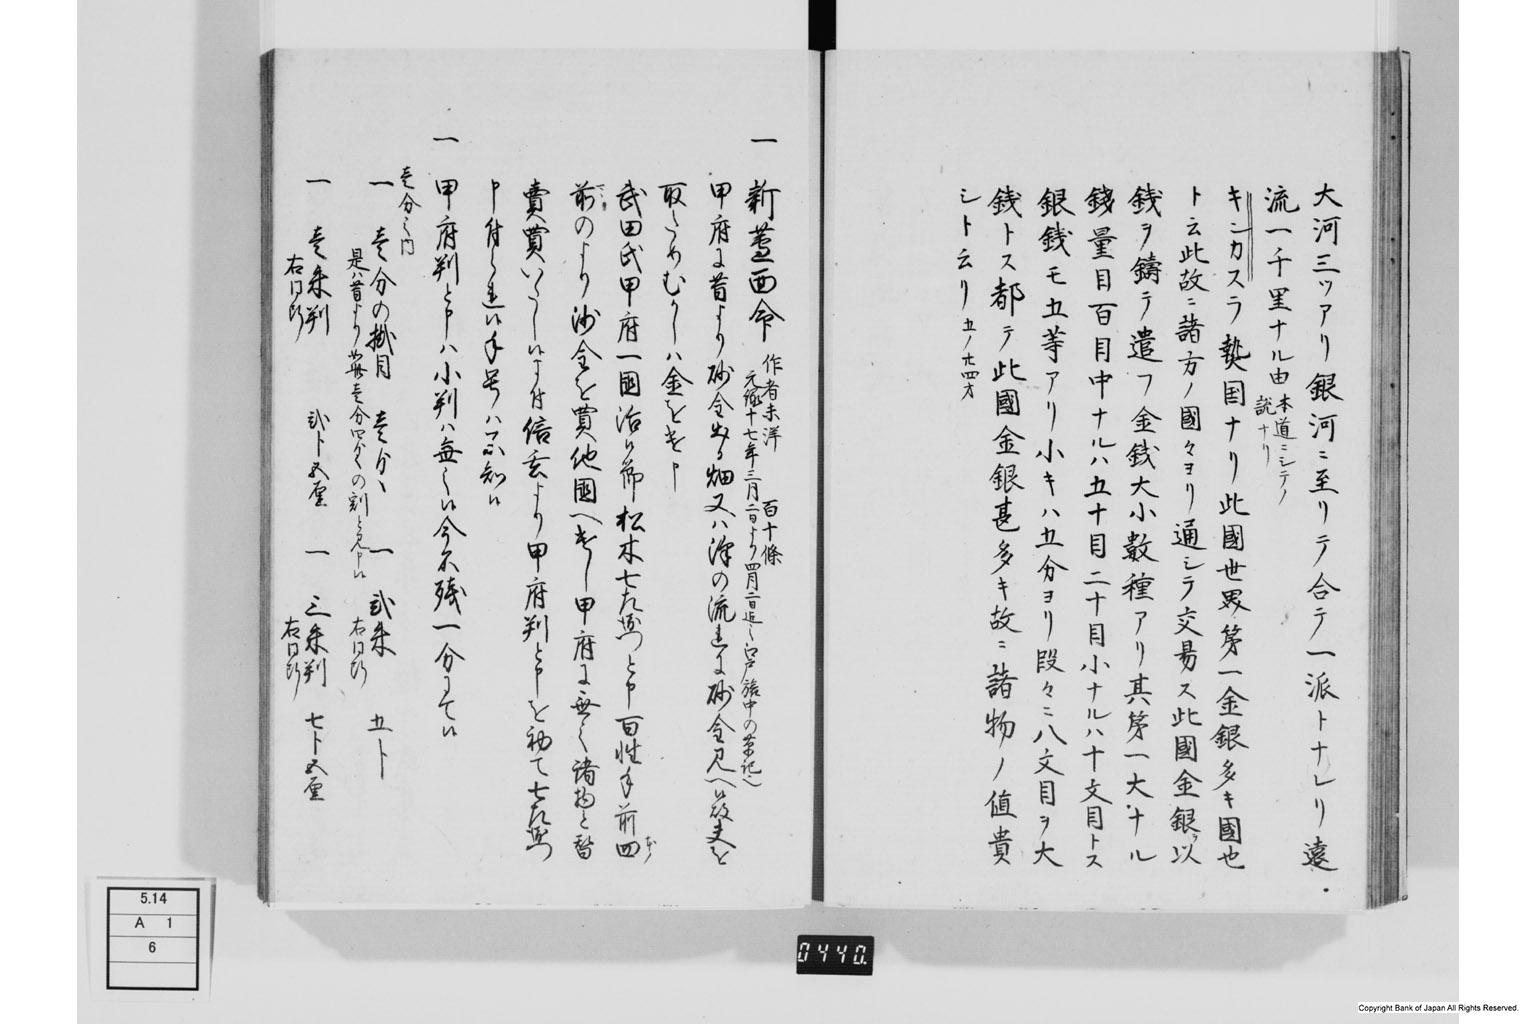 大河三ッアリ銀河ニ至リテ合テ一派トナレリ遠
流一千里ナル由本道ニシテノ
説ナリ
キンカスラ執国ナリ此國世界第一金銀多キ國也
ト云此故ニ諸方ノ國々ヨリ通シテ交易ス此國金銀ヲ以
銭ヲ鑄テ遣フ金銭大小数種アリ其第一大ナル
銭量目百目中ナルハ五十目二十目小ナルハ十文目トス
銀銭モ五等アリ小キハ五分ヨリ段々ニ八文目ヲ大
銭トス都テ此國金銀甚多キ故ニ諸物ノ値貴
シト云リ五ノ廿四才
一 新蘆面命 作者未洋 百十條
元禄十七年三月二日より四月二日迄江戸旅中の筆記也
甲府ニ昔より砂金出る畑又ハ澤の流ニ砂金見へ候故夫を
取
むかしハ金を
武田氏甲府一國治候節松木七左衛門と申百性手前四
前のより沙金を買他國へ出し甲府ニ無之諸物と替
賣買いたし候ニ付信玄より甲府判と申を初て七左衛門
申付候年号ハ不知候
一 甲府判と申ハ小判ハ無之候今不残一分ニて候
壱分之内
一 壱分の掛目 壱匁 一 弐朱 五分
是ハ昔より壱分四匁の割と見申候 右同断
一 壱朱判 弐分五厘 一 三朱判 七分五厘
右同断 右同断
5.14
A 1
6
0440.
Copyright Bank of Japan All Rights Reserved.